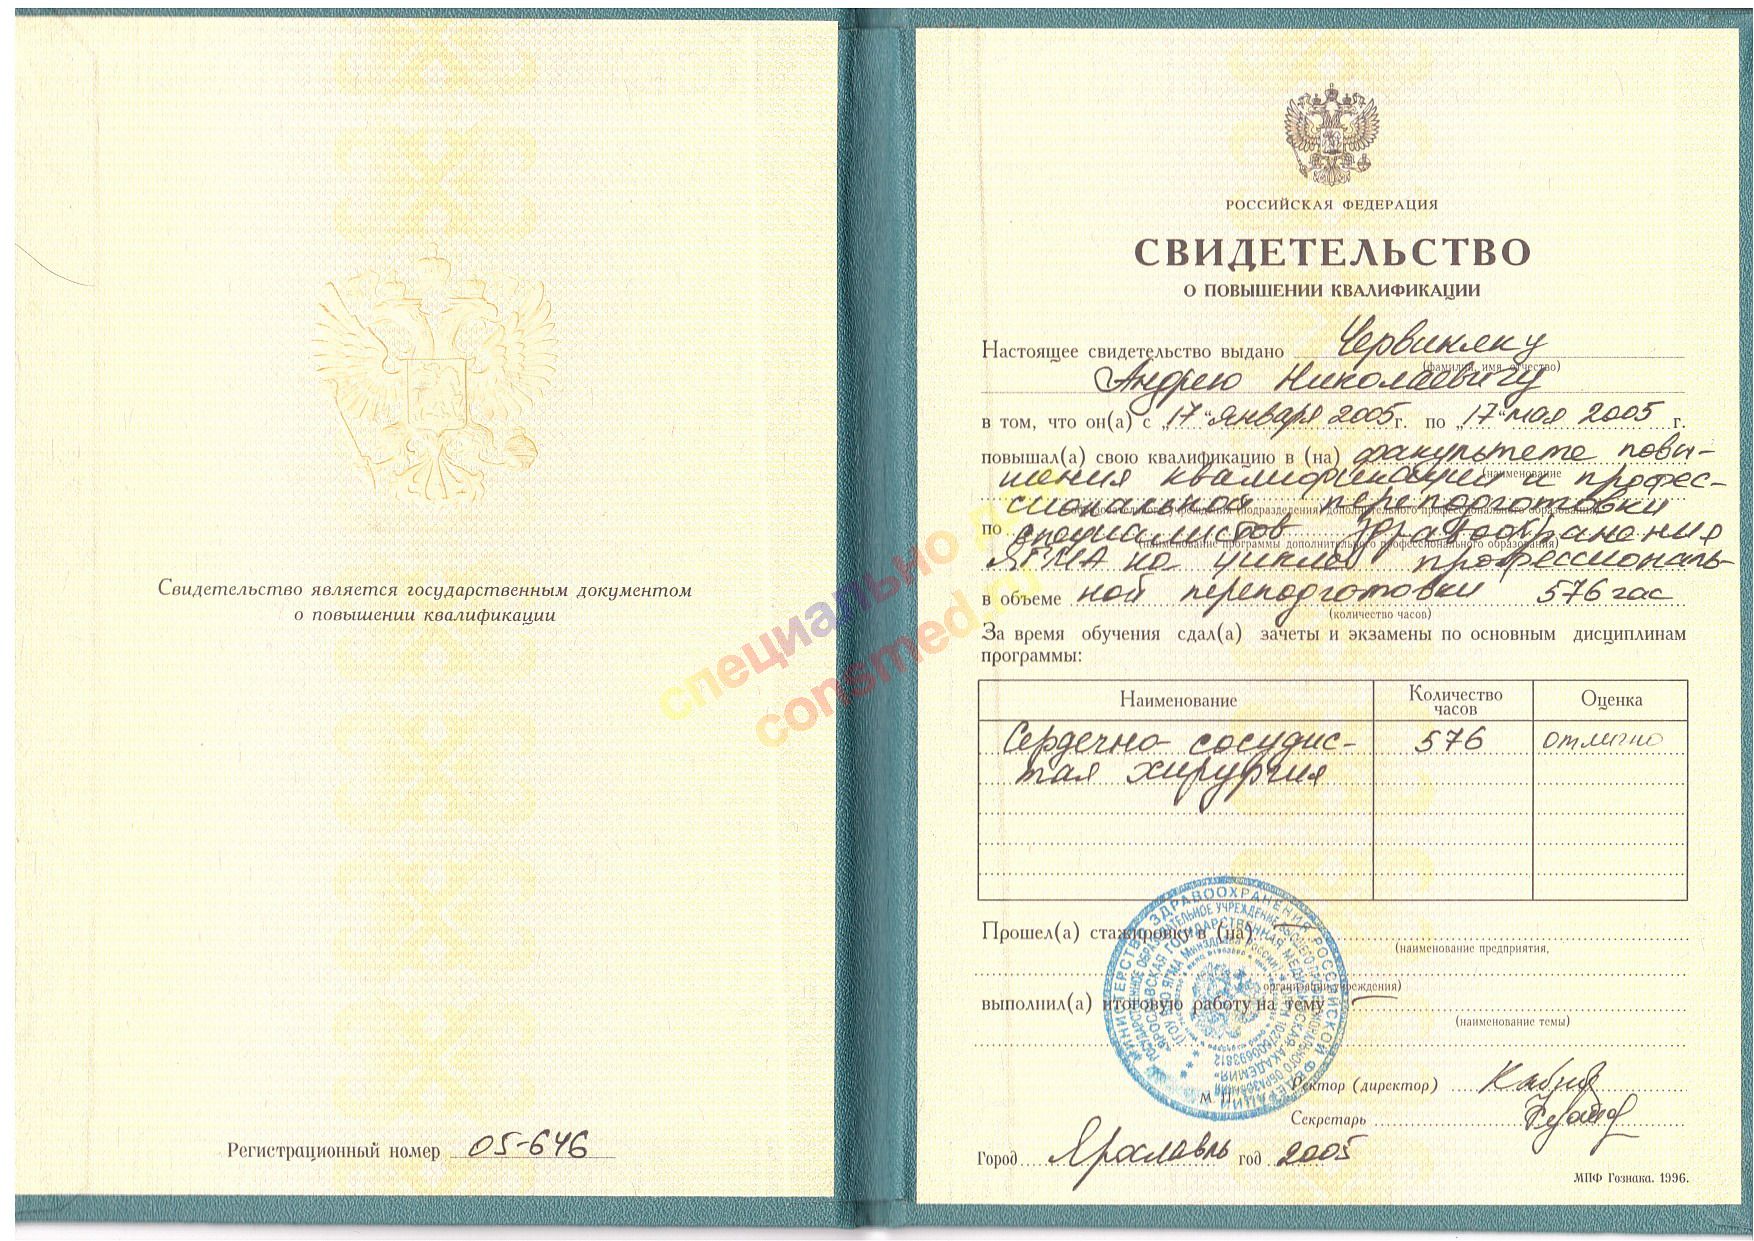 Свидетельство является государственным документом
о повышении квалификации
Регистрационный номер 05-646
специально для
consmed.ru
РОССИЙСКАЯ ФЕДЕРАЦИЯ
СВИДЕТЕЛЬСТВО
О ПОВЫШЕНИИ КВАЛИФИКАЦИИ
Настоящее свидетельство выдано Червиняку
(фамилия, имя, отчество)
Андрею Николаевичу
в том, что он(а) с „17“ января 2005 г. по „17“ мая 2005 г.
повышал(а) свою квалификацию в (на) факультете повы-
(наименование
шения квалификации и профес-
сиональной переподготовки
образовательного учреждения (подразделения) дополнительного профессионального образования)
по специалистов здравоохранения
(наименование программы дополнительного профессионального образования)
ЯГМА на цикле профессиональ-
в объеме ной переподготовки 576 час
(количество часов)
За время обучения сдал(а) зачеты и экзамены по основным дисциплинам
программы:
Наименование Количество часов Оценка
Сердечно-сосудис- 576 отлично
тая хирургия
Прошел(а) стажировку в (на) —
(наименование предприятия,
организации, учреждения)
выполнил(а) итоговую работу на тему —
(наименование темы)
МИНИСТЕРСТВО ЗДРАВООХРАНЕНИЯ РОССИЙСКОЙ ФЕДЕРАЦИИ
ГОСУДАРСТВЕННОЕ ОБРАЗОВАТЕЛЬНОЕ УЧРЕЖДЕНИЕ ВЫСШЕГО ПРОФЕССИОНАЛЬНОГО ОБРАЗОВАНИЯ
"ЯРОСЛАВСКАЯ ГОСУДАРСТВЕННАЯ МЕДИЦИНСКАЯ АКАДЕМИЯ"
(ГОУ ВПО ЯГМА Минздрава России)
М. П.
Ректор (директор)
Секретарь
Город Ярославль год 2005
МПФ Гознака. 1996.